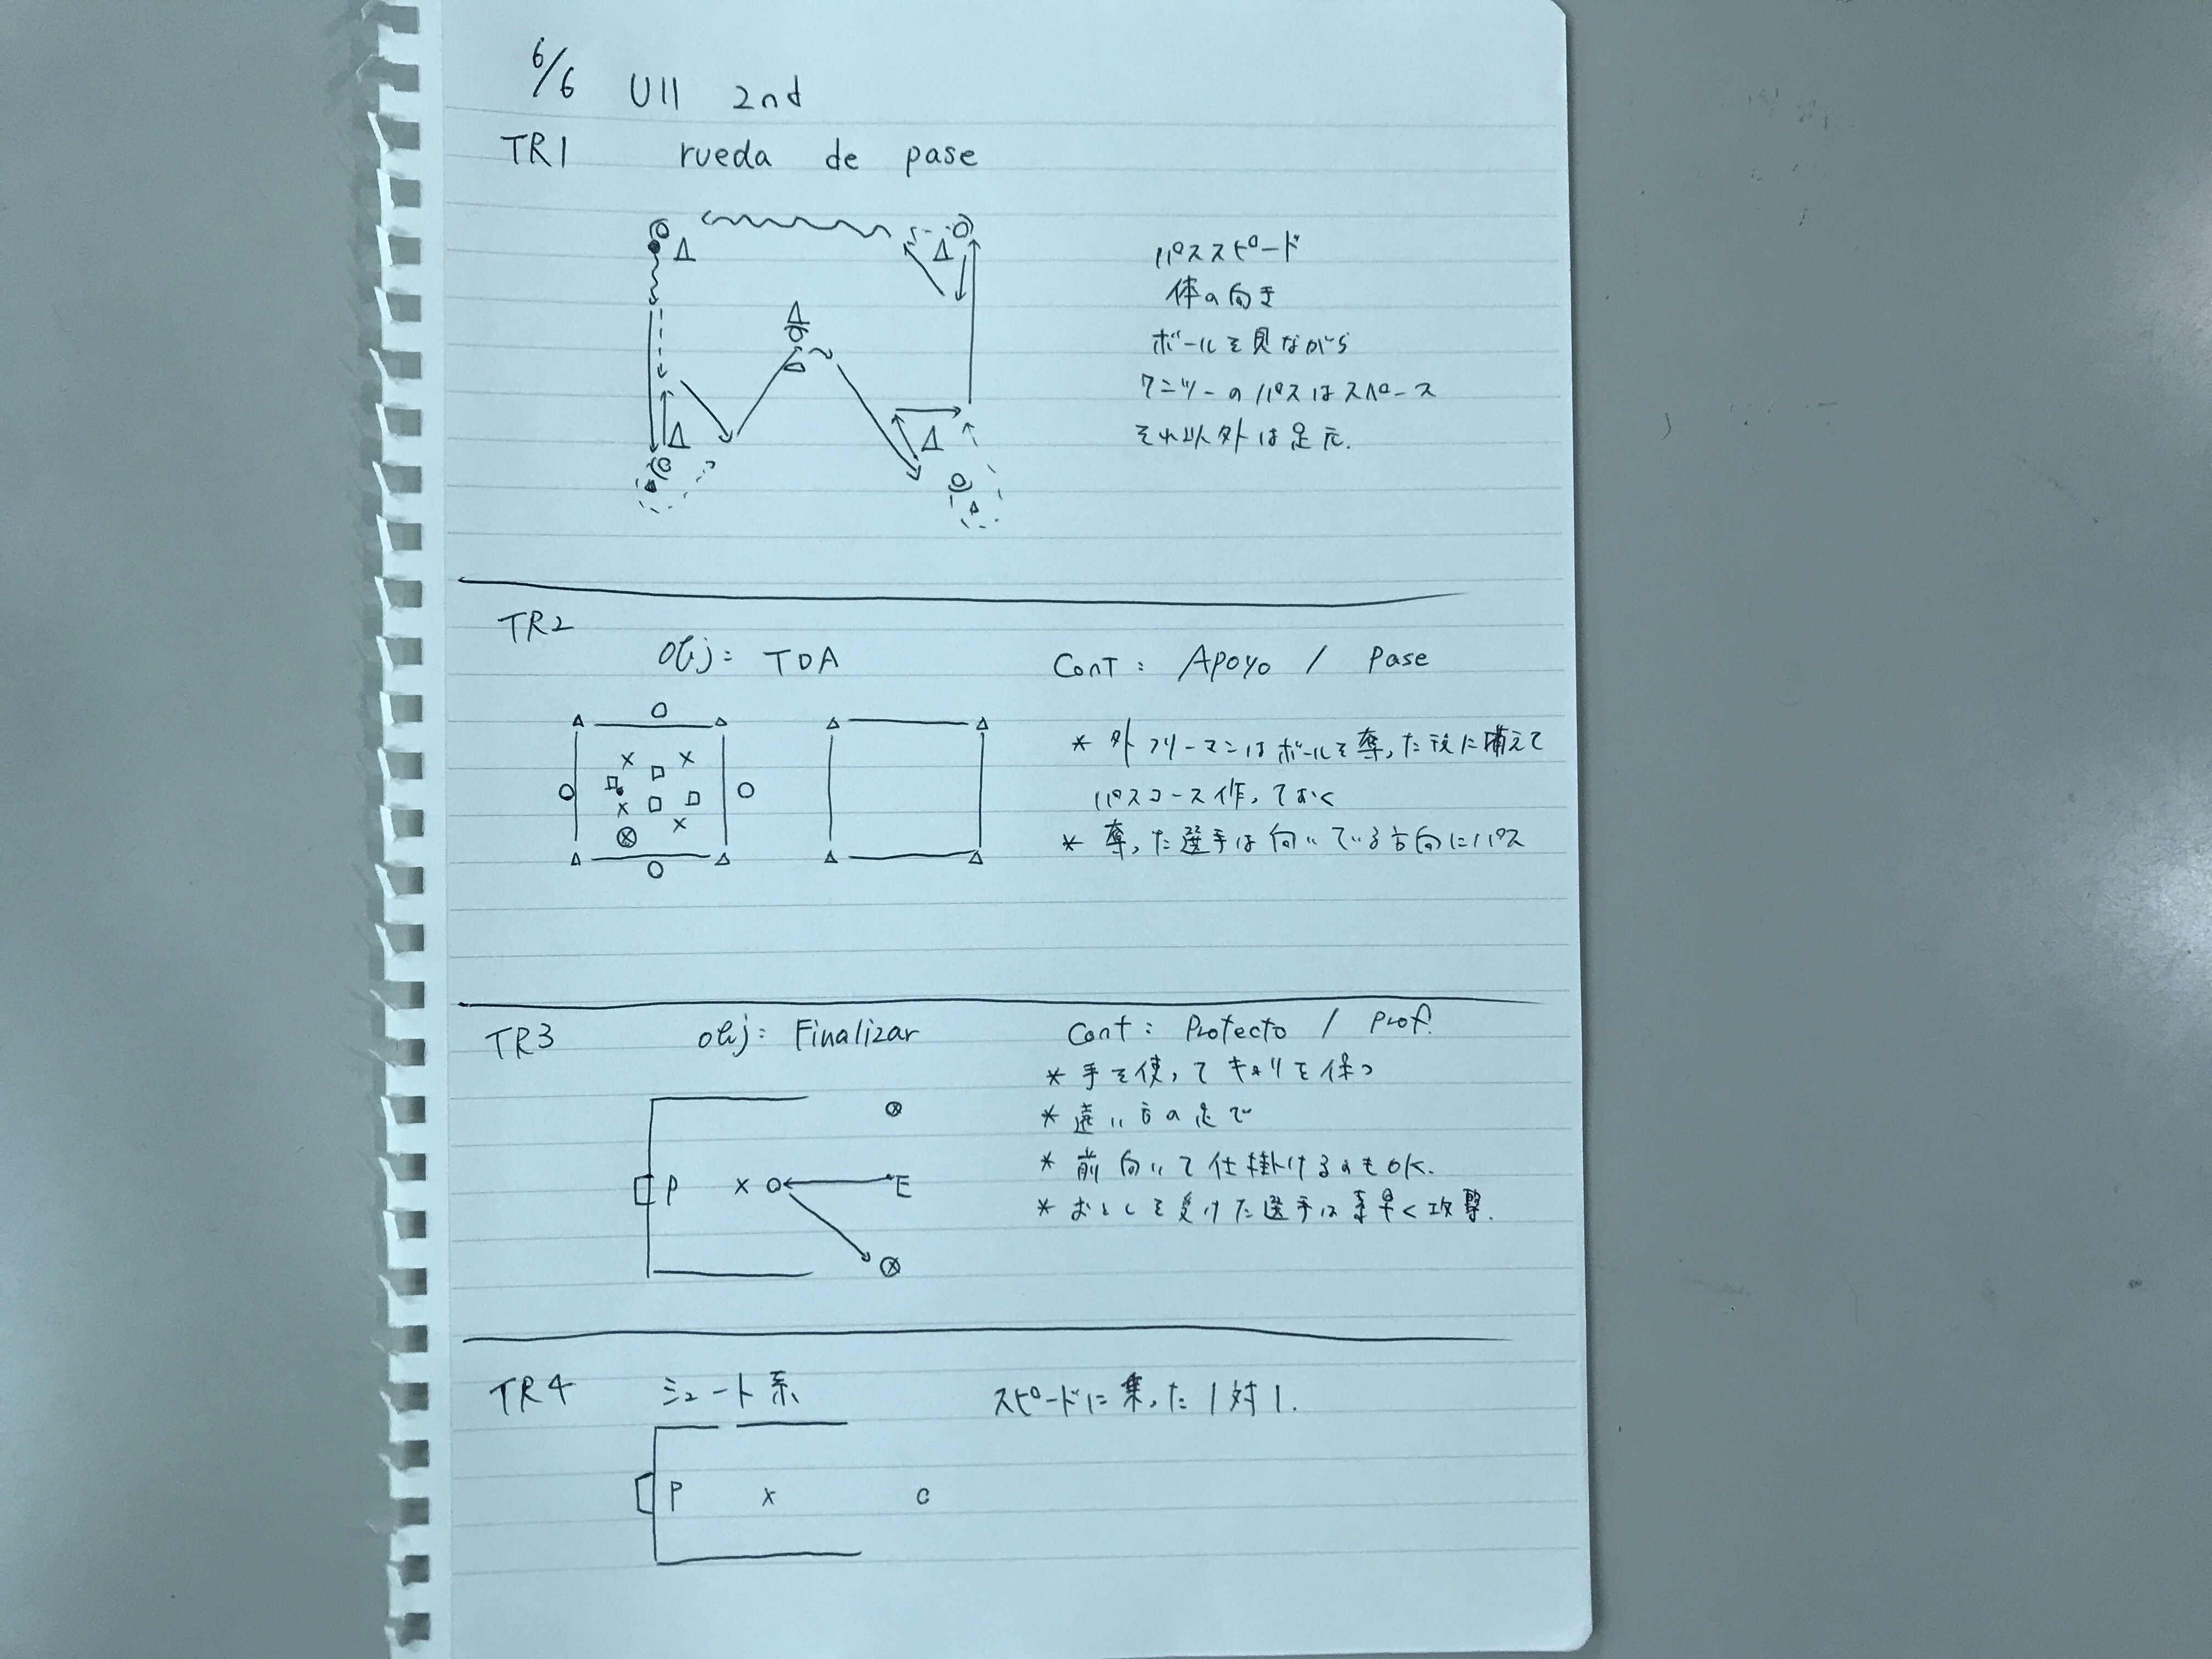 6/6 U11 2nd
TR1 rueda de pase
パススピード
体の向き
ボールを見ながら
ワンツーのパスはスペース
それ以外は足元.
TR2
Obj: TDA Cont: Apoyo / Pase
* 外フリーマンはボールを奪った後に備えて
パスコース作っておく
* 奪った選手は向いている方向にパス
TR3 obj: Finalizar Cont: Protecto / Prof.
* 手を使ってキョリを保つ
* 遠い方の足で
* 前向いて仕掛けるのもOK.
P X E
* おとしを受けた選手は素早く攻撃.
TR4 シュート系 スピードに乗った1対1.
P X